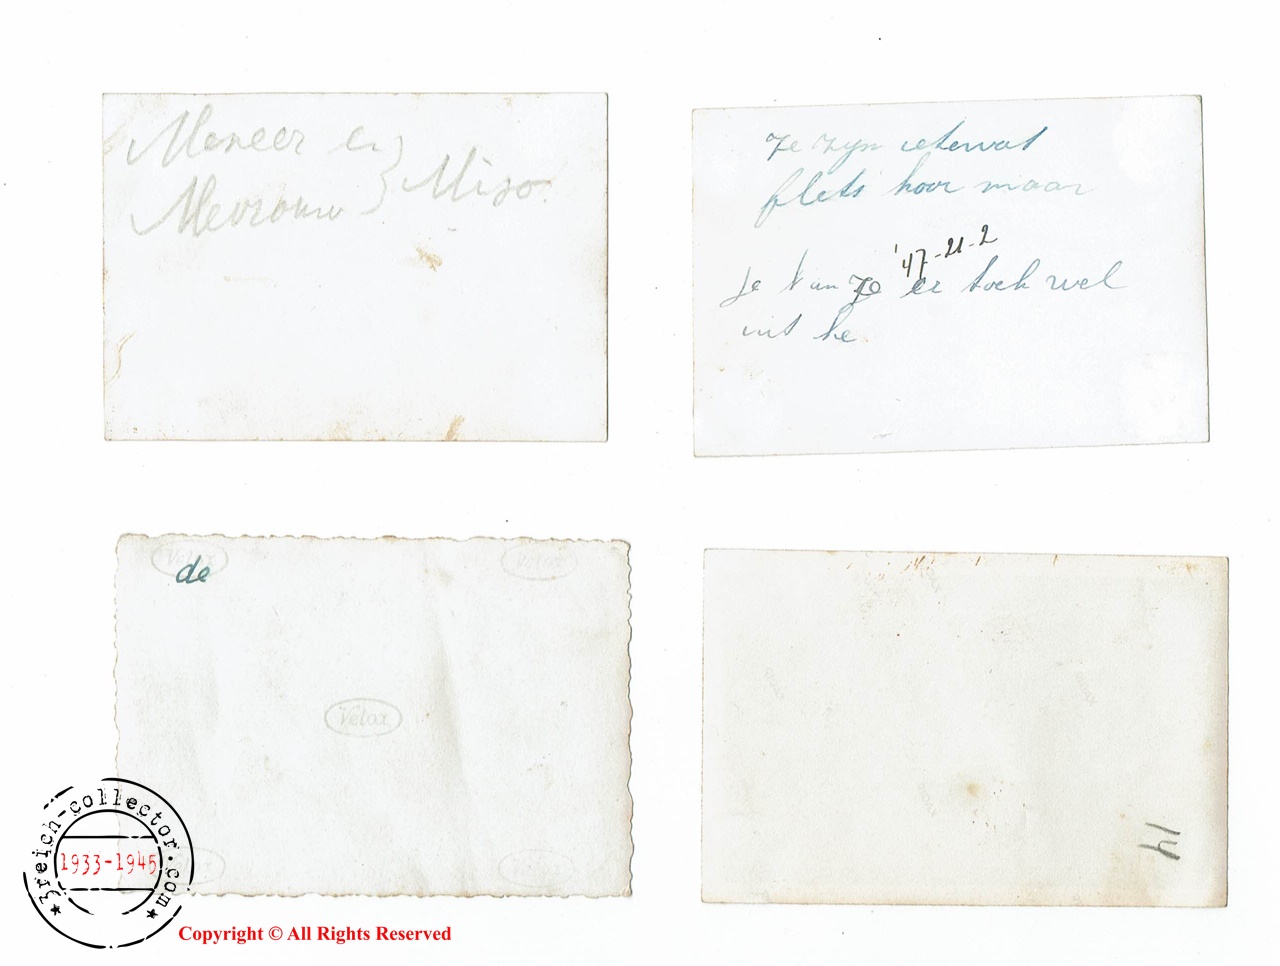 Meneer en } Miso.
Mevrouw
Ze zijn ietswat
flets hoor maar
'47-21-2
Je kan ze er toch wel
uit he
Velox
de
Velox
Velox
14
3reich-collector.com
1933-1945
Copyright © All Rights Reserved